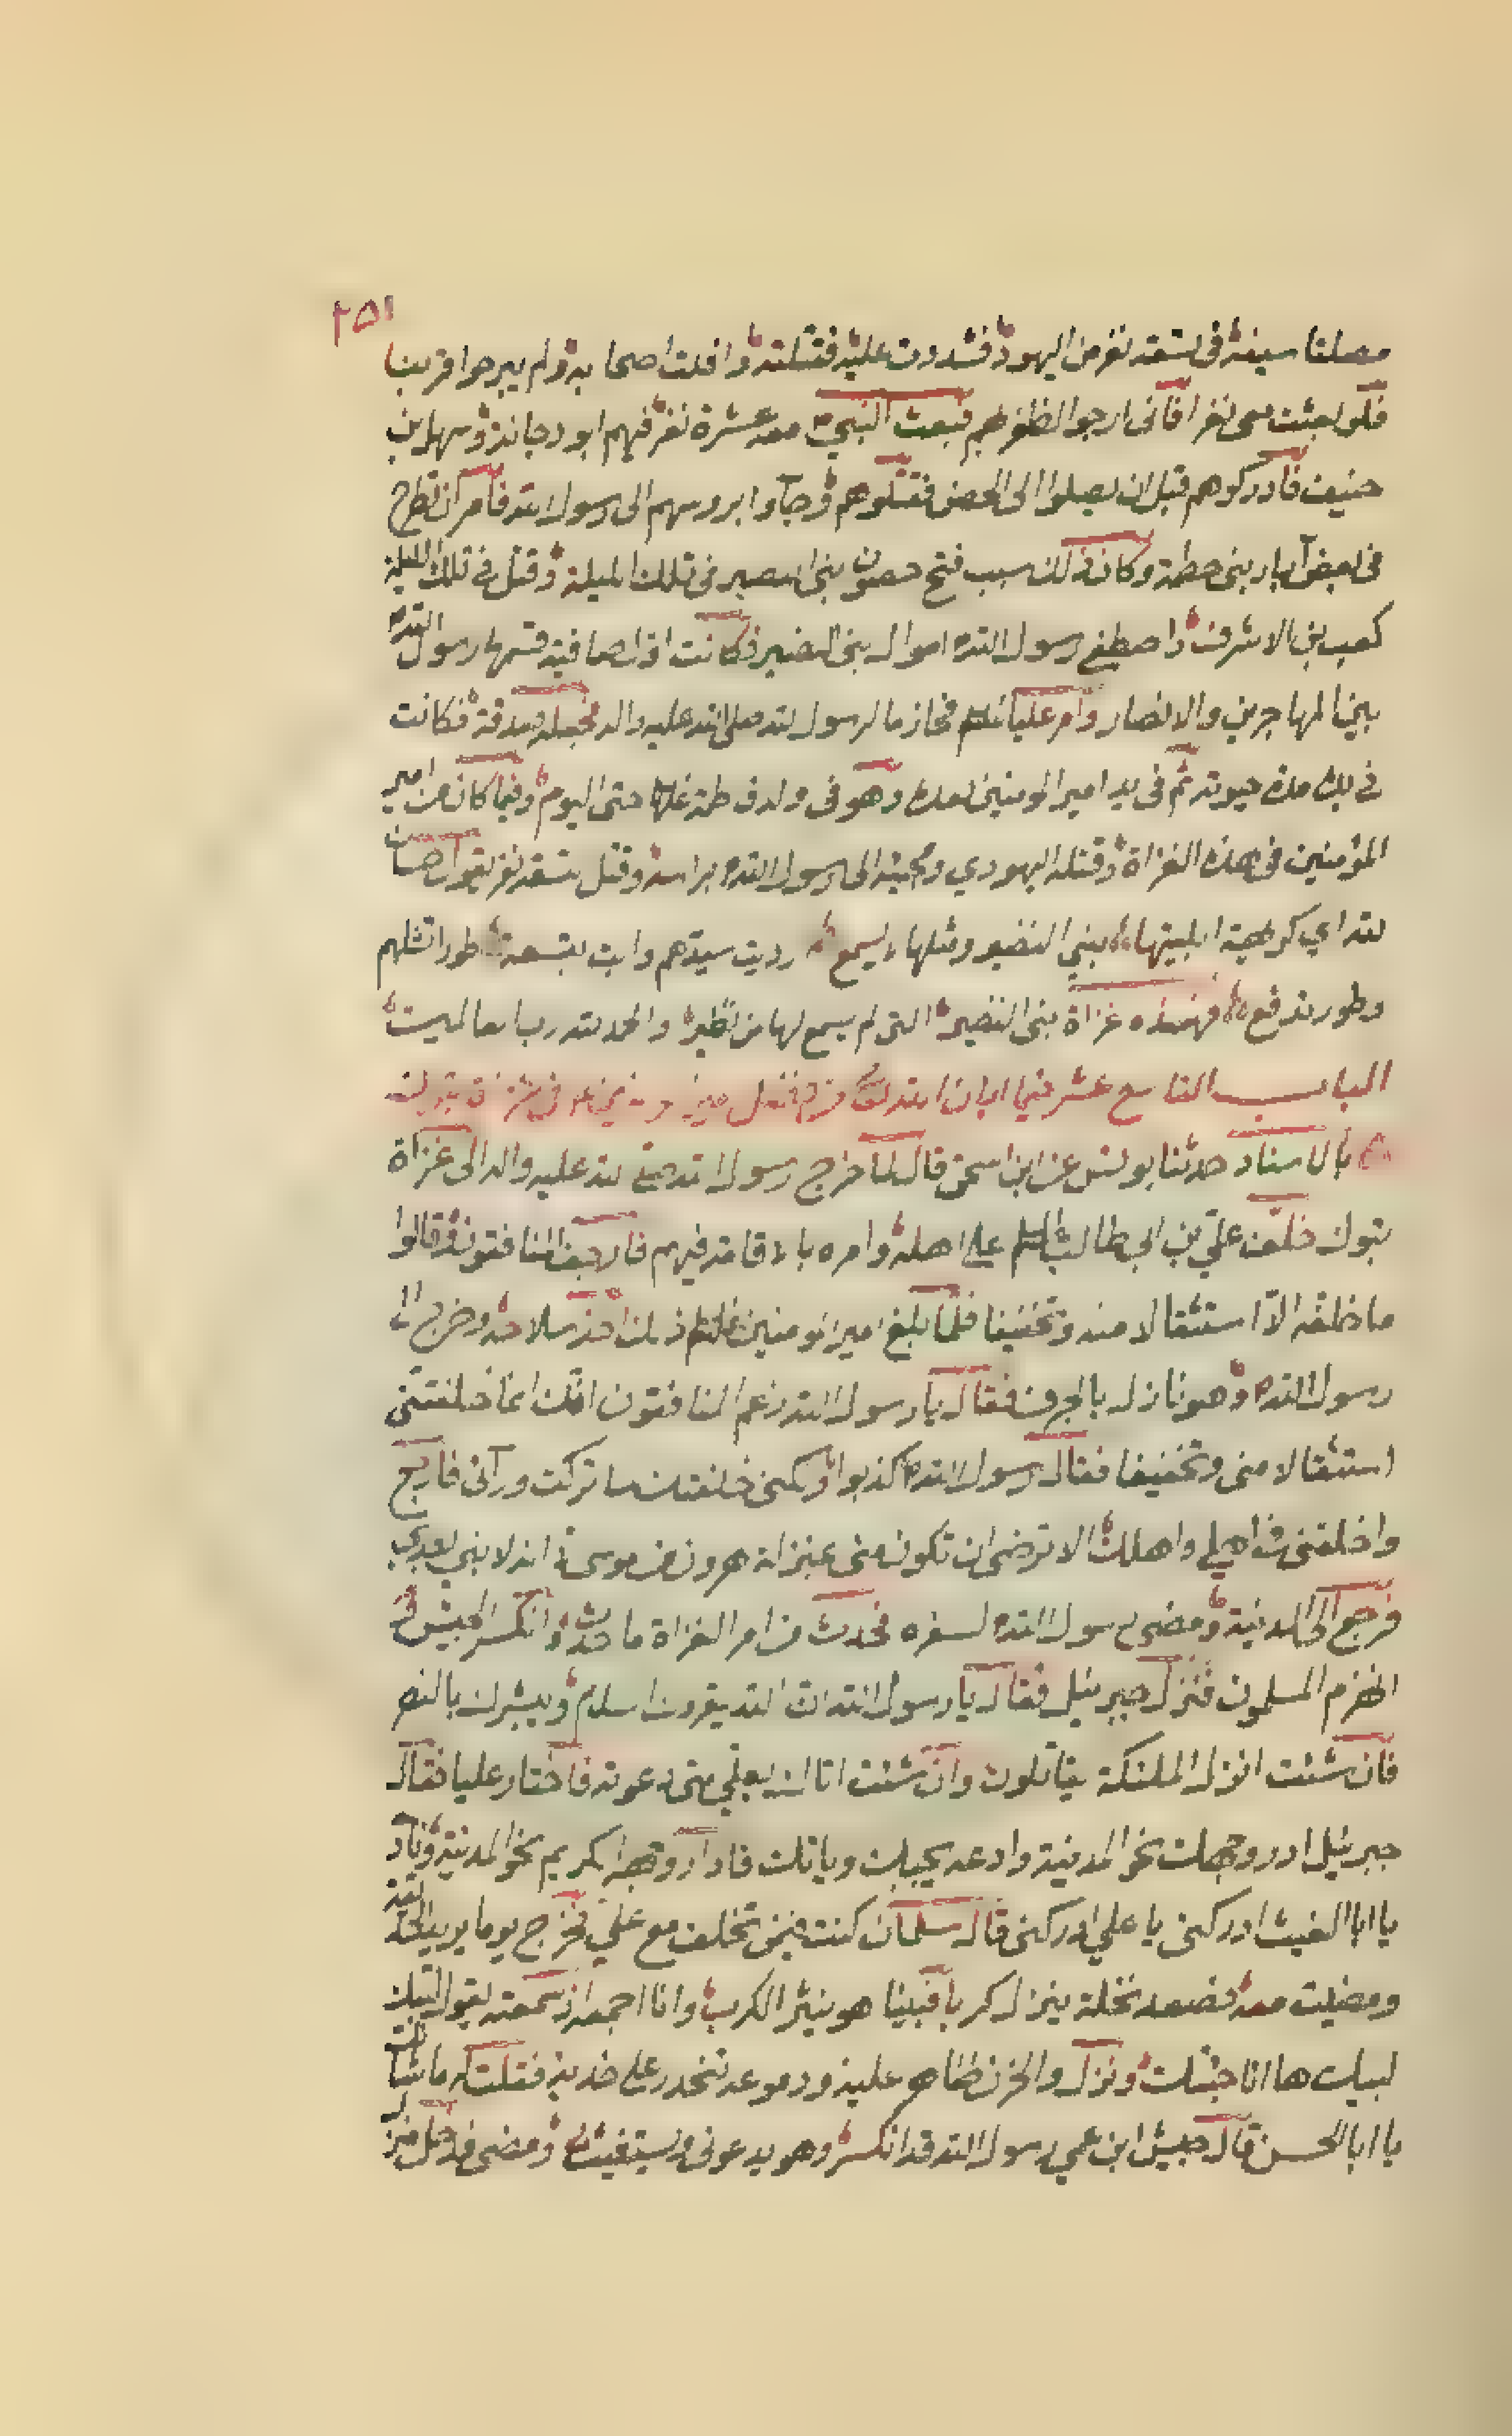 ٢٥١
مصلتا سيفه فى تسعة نفر من اليهود فشددت عليه فقتلته وافلت اصحابه ولم يبرحوا قريبا
فلو بعثت معى نفرا فانى ارجوا لظفر بهم فبعث النبي ص معه عشرة نفر فيهم ابو دجانة وسهل بن
حنيف فادركوهم قبل ان يصلوا الى الحصن فقتلوهم وجآوا بروسهم الى رسول الله فامر ان تطرح
فى بعض آبار بنى حطمة وكان ذلك سبب فتح حصون بنى النصير فى تلك الليلة وقتل فى تلك الليلة
كعب بن الاشرف واصطفى رسول الله ص اموال بنى النضير فكانت اول صافية قسمها رسول الله ص
بين المهاجرين والانصار وامر عليا فحاز ما لرسول الله صلى الله عليه واله فجعله صدقة فكانت
فى يده مدة حيوته ثم فى يد امير المومنين بعده وهو فى ولد فاطمة حتى اليوم وفيما كان من امير
المؤمنين فى هذه الغزاة وقتله اليهودي ومجيئه الى رسول الله ص براسه وقتل تسعة نفر يقول حسان
لله اي كريهة ابليتها ببني النضير ومثلها لم يسمع رديت سيدهم وابت بتسعة طورا تشلهم
وطورا تدفع فهذه غزاة بنى النضير التى لم يسمع لها من نظير والحمد لله رب العالمين
الباب التاسع عشر فيما ابان الله من فضل فى غزاة تبوك
بالاسناد حدثنا يونس عن ابن اسحق قال لما خرج رسول الله صلى الله عليه واله الى غزاة
تبوك خلف علي بن ابى طالب على اهله وامره بالاقامة فيهم فارجف المنافقون وقالوا
ما خلفه الا استثقالا منه وتخفيفا فلما بلغ امير المومنين ذلك اخذ سلاحه وخرج الى
رسول الله ص وهو نازل بالجرف فقال يا رسول الله زعم المنافقون انك انما خلفتنى
استثقالا منى وتخفيفا فقال رسول الله ص كذبوا ولكنى خلفتك لما تركت ورآئى فارجع
واخلفنى فى اهلى واهلك الا ترضى ان تكون منى بمنزلة هرون من موسى الا انه لا نبى بعدي
فرجع الى المدينة ومضى رسول الله ص لسفره فحدث من امر الغزاة ما حدث وانكسر الجيش و
انهزم المسلمون فنزل جبرئيل فقال يا رسول الله ان الله يقروك السلام ويبشرك بالنصر
فان شئت انزل الملئكة يقاتلون وان شئت اتاك بعلي متى دعوته فاختار عليا فقال
جبرئيل ادر وجهك نحو المدينة وادعه يجيبك وياتك فادار وجهه الكريم نحو المدينة وناد
يا ابا الغيث ادركنى يا علي ادركنى قال سلمان كنت فيمن تخلف مع علي فخرج يوما يريد الحديقة
ومضيت معه فصعد نخلة ينزل كربا فبينا هو ينثر الكرب وانا اجمعه اذ سمعته يقول لبيك
لبيك ها انا جئتك ونزل والحزن ظاهر عليه ودموعه تنحدر على خديه فقلت له ما شانك
يا ابا الحسن قال جيش ابن عمي رسول الله قد انكسر وهو يدعونى ويستغيث ومضى فدخل منزل